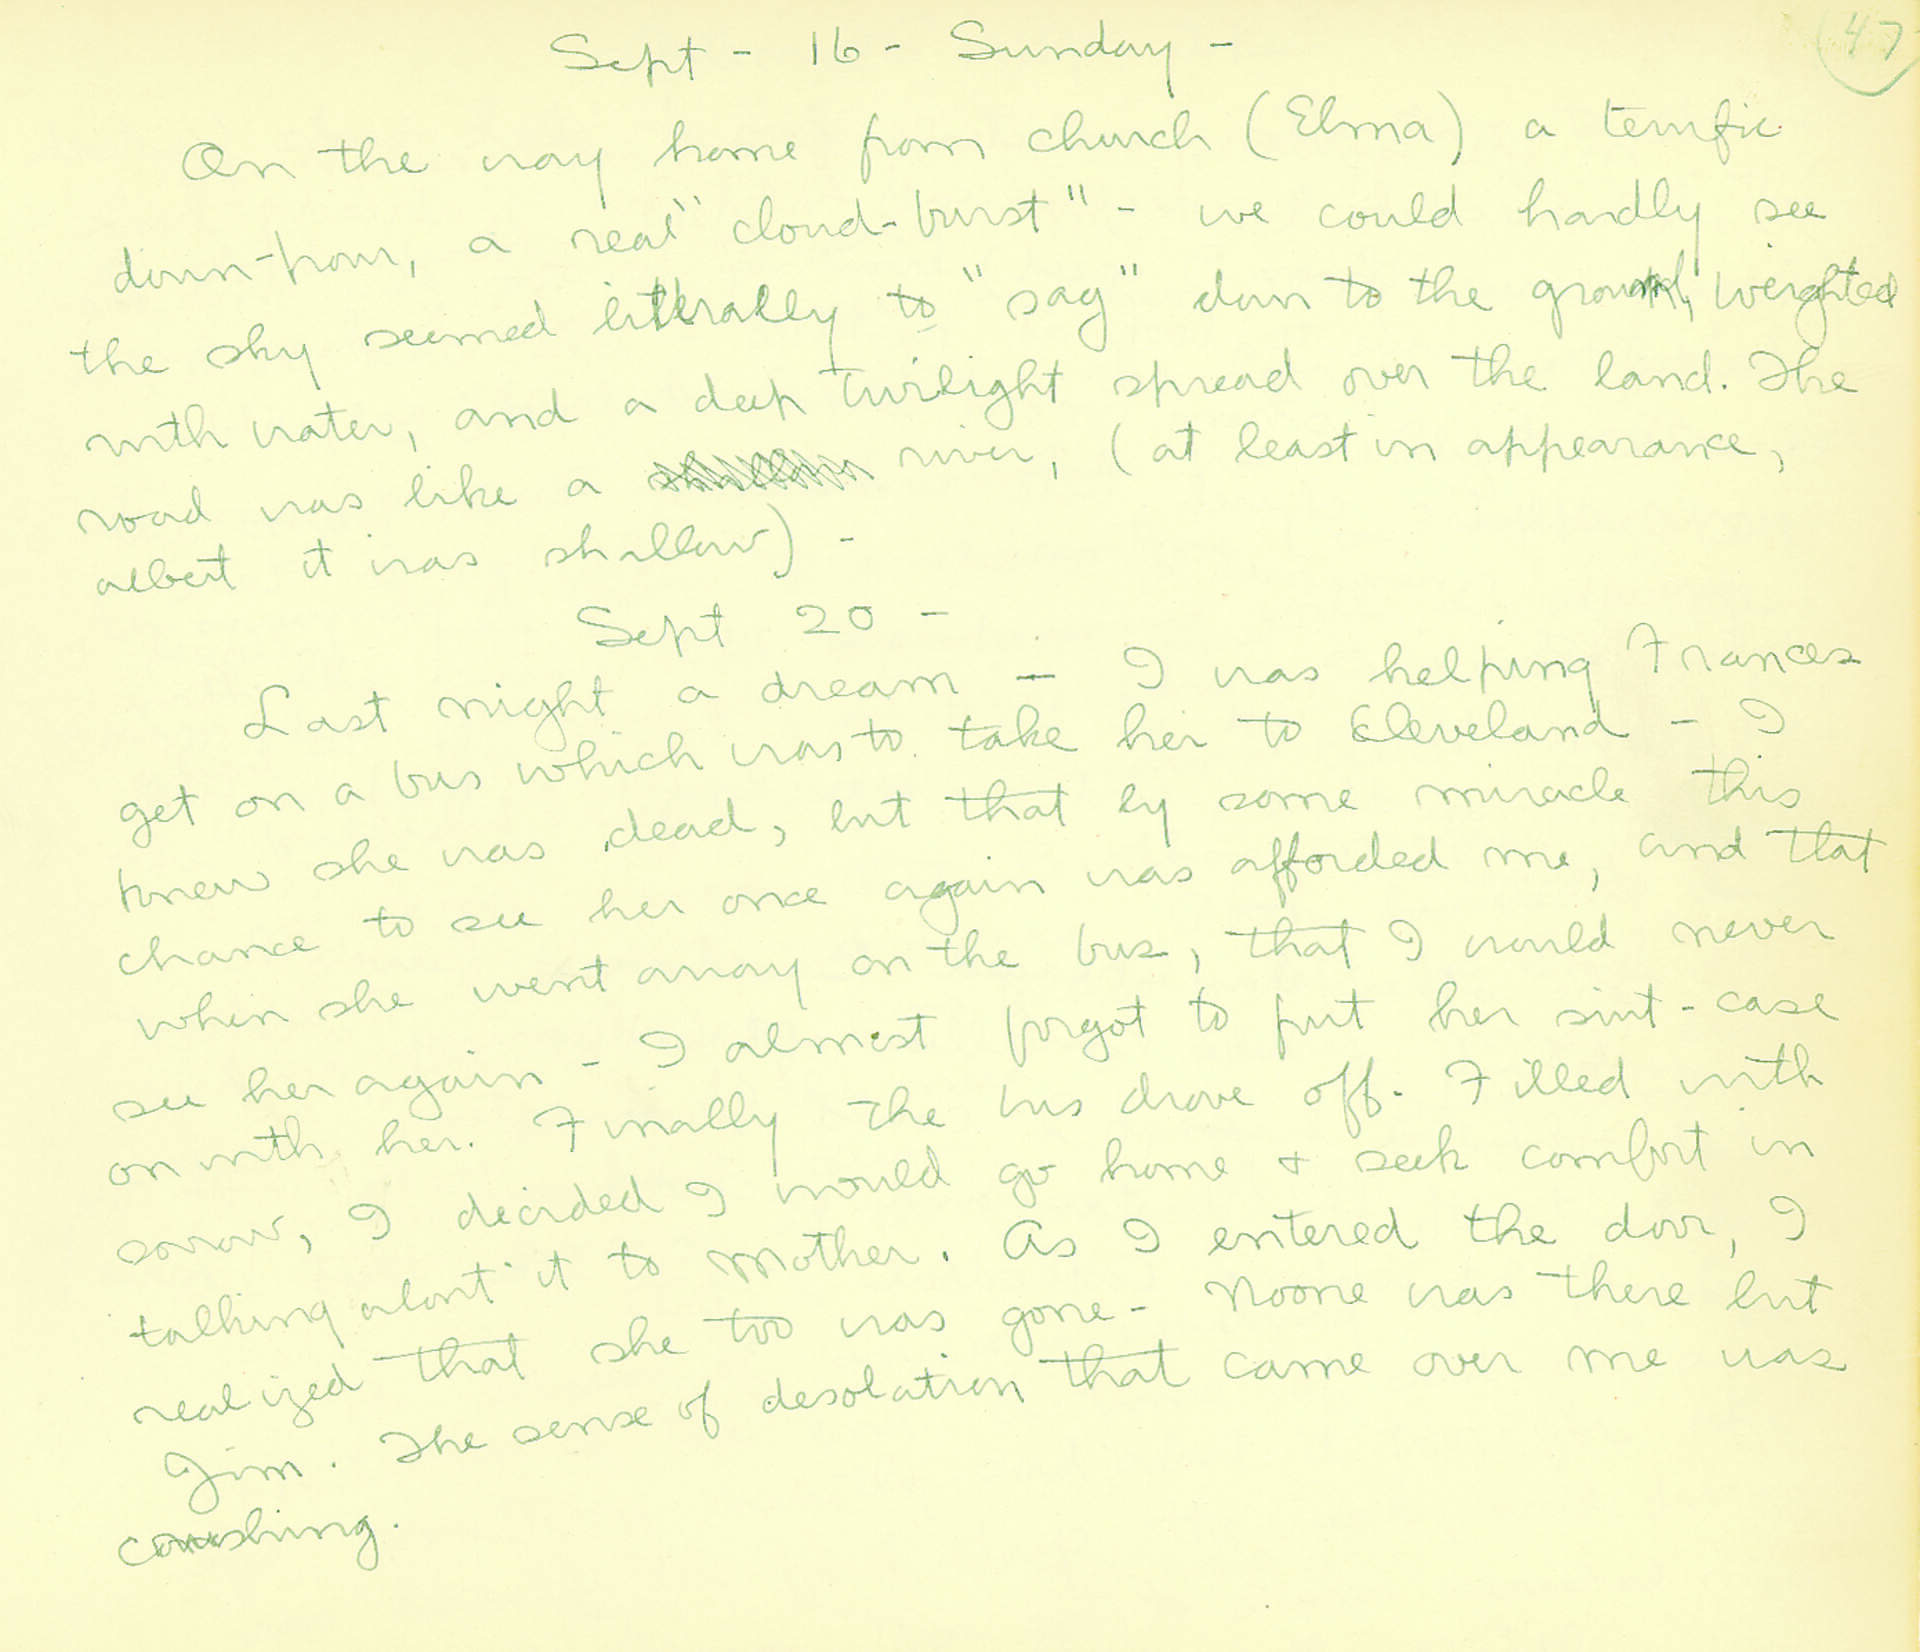 47
Sept - 16 - Sunday -
On the way home from church (Elma) a terrific
down-pour, a real "cloud-burst" - we could hardly see
the sky seemed literally to "sag" down to the ground, weighted
with water, and a deep twilight spread over the land. The
road was like a river, (at least in appearance,
albeit it was shallow) -
Sept 20 -
Last night a dream - I was helping Frances
get on a bus which was to take her to Cleveland - I
knew she was dead, but that by some miracle this
chance to see her once again was afforded me, and that
when she went away on the bus, that I would never
see her again - I almost forgot to put her suit-case
on with her. Finally the bus drove off. Filled with
sorrow, I decided I would go home & seek comfort in
talking about it to Mother. As I entered the door, I
realized that she too was gone - Noone was there but
Jim. The sense of desolation that came over me was
crushing.